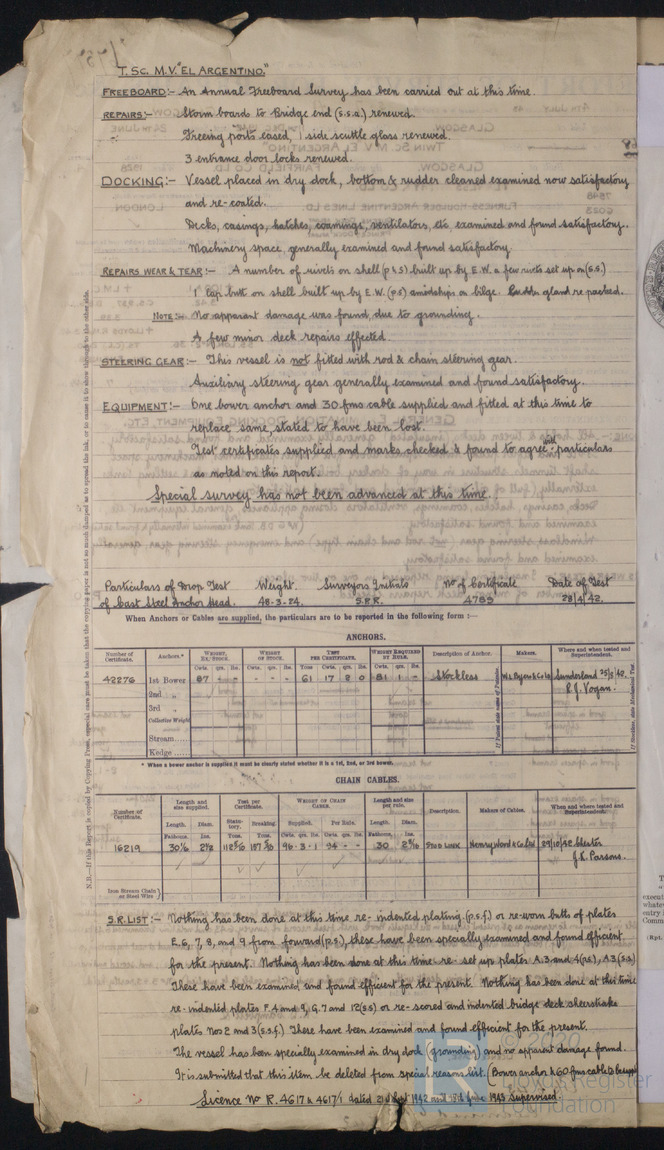 T. Sc. M.V. "EL ARGENTINO."
FREEBOARD:- An Annual Freeboard Survey has been carried out at this time.
REPAIRS:- Storm boards to Bridge end (s.s.a.) renewed.
Freeing ports eased, 1 side scuttle glass renewed.
3 entrance door locks renewed.
DOCKING:- Vessel placed in dry dock, bottom & rudder cleaned examined now satisfactory
and re-coated.
Decks, casings, hatches, coamings, ventilators, etc examined and found satisfactory.
Machinery space, generally examined and found satisfactory.
REPAIRS WEAR & TEAR:- A number of rivets on shell (p & s) built up by E.W. a few rivets set up on (s.s.)
1 lap butt on shell built up by E.W. (p.s) amidships on bilge. Rudder gland re packed.
NOTE:- No apparent damage was found due to grounding.
A few minor deck repairs effected.
STEERING GEAR:- This vessel is not fitted with rod & chain steering gear.
Auxiliary steering gear generally examined and found satisfactory.
EQUIPMENT:- One bower anchor and 30 fms cable supplied and fitted at this time to
replace same, stated to have been lost.
Test certificates supplied and marks checked & found to agree with particulars
as noted on this report.
Special survey has not been advanced at this time.
Particulars of Drop Test Weight. Surveyors Initials No of Certificate Date of Test
of Cast Steel Anchor Head. 48-3-24. S.P.R. 4785 28/4/42.
When Anchors or Cables are supplied, the particulars are to be reported in the following form :—
ANCHORS.
Number of Certificate. Anchors.* Weight, Ex. Stock. Weight of Stock. Test per Certificate. Weight Required by Rule. Description of Anchor. Makers. Where and when tested and Superintendent.
Cwts. qrs. lbs. Cwts. qrs. lbs. Tons Cwts. qrs. lbs. Cwts. qrs. lbs.
42276 1st Bower 87 - - - - - 61 17 2 0 81 1 - Stockless Sunderland
2nd " R.J. Vogan.
3rd "
Collective Weight
Stream.....
Kedge.....
* When a bower anchor is supplied it must be clearly stated whether it is a 1st, 2nd, or 3rd bower.
CHAIN CABLES.
Number of Certificate. Length and size supplied. Test per Certificate. WEIGHT OF CHAIN CABLE. Length and size per rule. Description. Makers of Cables. When and where tested and Superintendent.
Length. Diam. Statutory. Breaking. Supplied. Per Rule. Length. Diam.
Fathoms. Ins. Tons. Tons. Cwts. qrs. lbs. Cwts. qrs. lbs. Fathoms. Ins.
16219 96-3-1 94 - - 30 Stud Link Henry Wood & Co Ltd 29/10/42 Chester
J.K. Parsons.
Iron Stream Chain or Steel Wire
S.R. LIST:- Nothing has been done at this time re- indented plating (p.s.f.) or re-worn butts of plates
E.6, 7, 8, and 9 from forward (p.s.), these have been specially examined and found efficient
for the present. Nothing has been done at this time re- set up plates A.3 and 4 (p.s.), A3 (s.s.)
These have been examined and found efficient for the present. Nothing has been done at this time
re-indented plates F.4 and 9, G.7 and 12 (s.s) or re- scored and indented bridge deck sheerstrake
plates Nos 2 and 3 (s.s.f.) These have been examined and found efficient for the present.
The vessel has been specially examined in dry dock (grounding) and no apparent damage found.
It is submitted that this item be deleted from special reasons list. (Bower anchor & 60 fms cable to be
Licence No R. 4617 & 4617/1 dated 1942 and 18th June 1943 supervised.
N.B.—If this Report is copied by Copying Press, especial care must be taken that the copying paper is not so much damped as to spread the ink, or to cause it to show through to the other side.
© 2020
Lloyd's Register
Foundation